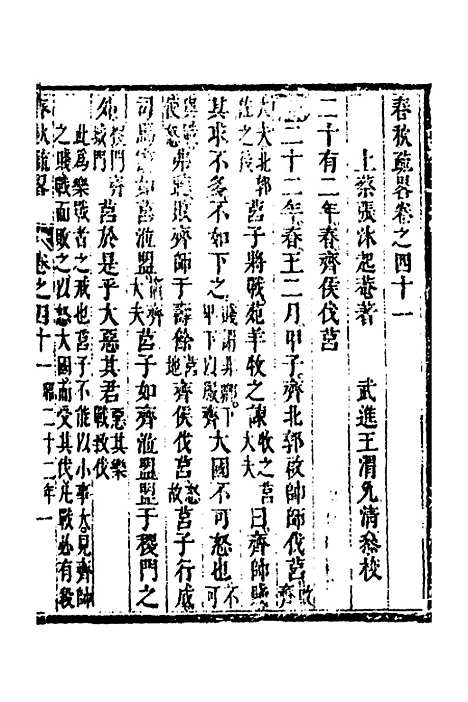 春秋疏畧卷之四十一
上蔡張沐起菴著 武進王渭允清叅校
二十有二年春齊侯伐莒
二十二年春王二月甲子齊北郭啟帥師伐莒啟齊
大夫北郭佐之後莒子將戰苑羊牧之諫牧之莒大夫曰齊師賤
其求不多不如下之賤謂非卿下甲下以嚴齊大國不可怒也不可
使怒弗聽敗齊師于壽餘莒地齊侯伐莒怒故莒子行成
司馬竈如莒涖盟齊大夫莒子如齊涖盟盟于稷門之
外稷門齊城門莒於是乎大惡其君惡其樂戰致伐
此為樂戰者之戒也莒子不能以小事大見齊師
之賤戰而敗之以怒大國而受其伐凡戰必有殺
春秋疏畧 卷之四十一 昭二十二年 一